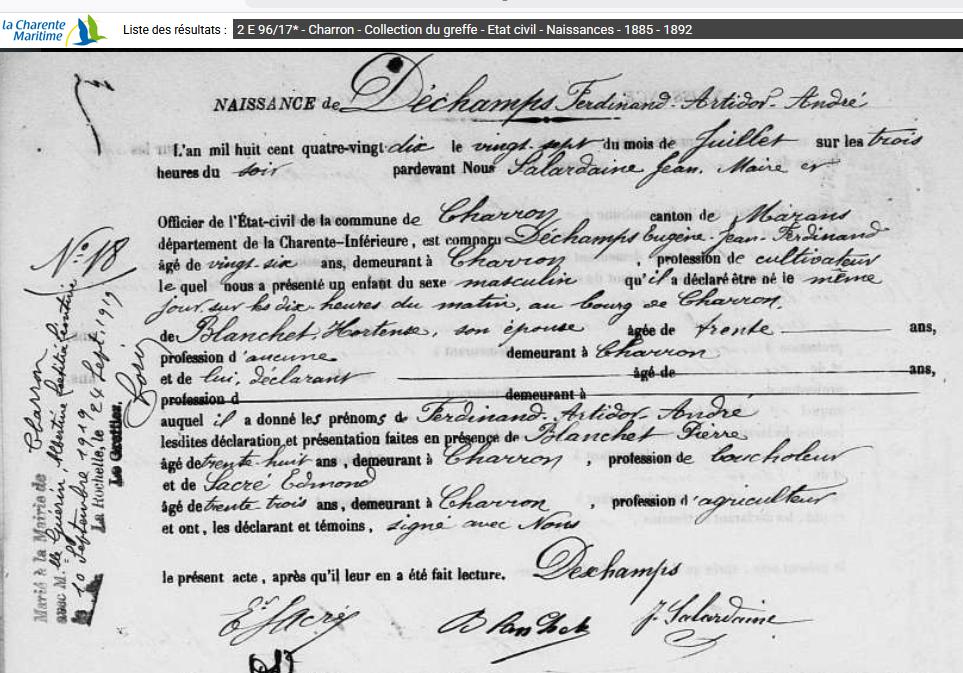 la Charente
Maritime
Liste des résultats : 2 E 96/17* - Charron - Collection du greffe - Etat civil - Naissances - 1885 - 1892
NAISSANCE de Déchamps Ferdinand-Artidor-André
L'an mil huit cent quatre-vingt-dix le vingt-sept du mois de Juillet sur les trois
heures du soir pardevant Nous Salardaine Jean, Maire et
Officier de l'État-civil de la commune de Charron canton de Marans
département de la Charente-Inférieure, est comparu Déchamps Eugène-Jean-Ferdinand
âgé de vingt-six ans, demeurant à Charron, profession de cultivateur
le quel nous a présenté un enfant du sexe masculin qu'il a déclaré être né le même
jour, sur les dix heures du matin, au bourg de Charron,
de Blanchet, Hortense, son épouse âgée de trente ans,
profession d'aucune demeurant à Charron
et de lui, déclarant âgé de ans,
profession d demeurant à
auquel il a donné les prénoms de Ferdinand-Artidor-André
lesdites déclaration et présentation faites en présence de Blanchet Pierre
âgé de trente-huit ans, demeurant à Charron, profession de boucholeur
et de Sacré Edmond
âgé de trente-trois ans, demeurant à Charron, profession d'agriculteur
et ont, les déclarant et témoins, signé avec Nous
le présent acte, après qu'il leur en a été fait lecture.
Dexhamps
Ed Sacré
Blanchet
J. Salardaine
N° 18
Marié à la Mairie de Charron
avec Mlle Guérin Albertine
le 10 Septembre 1919
La Rochelle, le 24 Sept. 1919
Le Greffier,